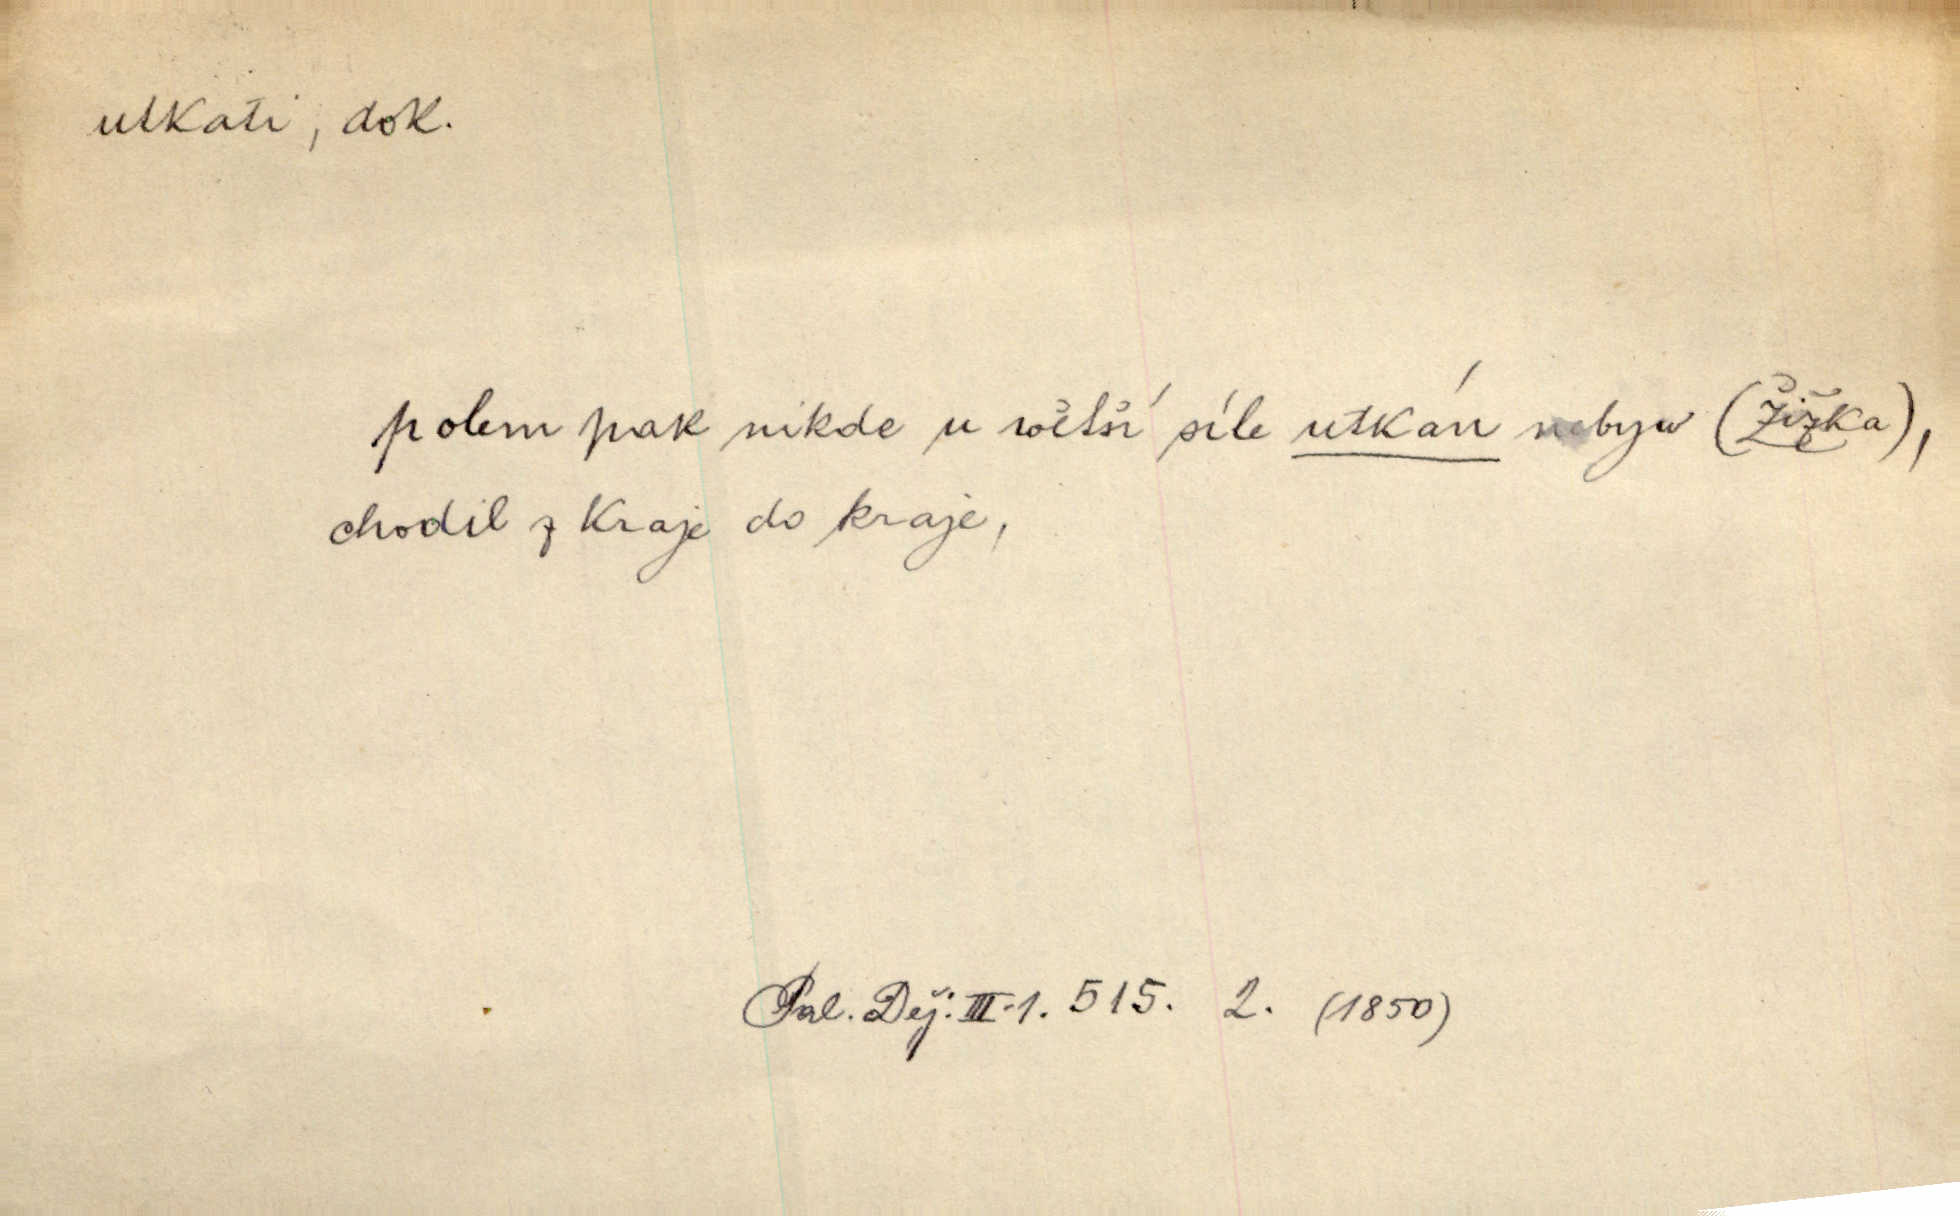 utkati, dok.
polem pak nikde u wětší síle utkán nebyw (Žižka),
chodil z kraje do kraje,
Pal. Děj. III-1. 515. 2. (1850)